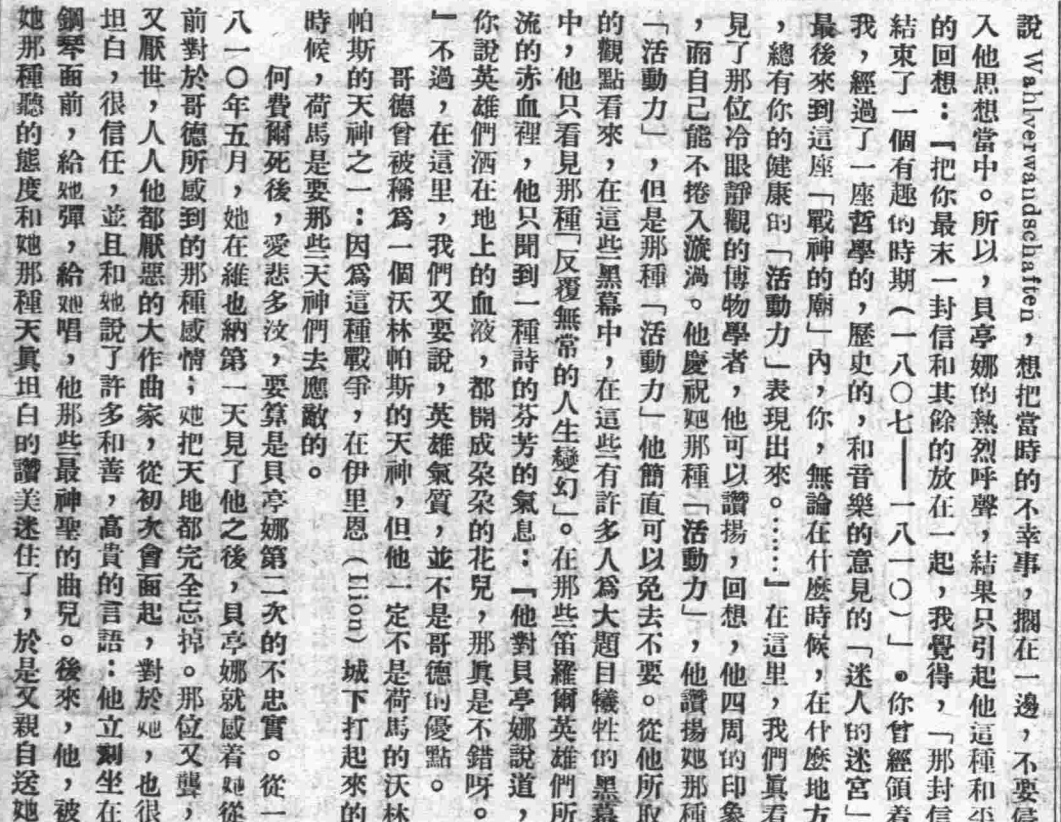 說 Wahlverwandschaften，想把當時的不幸事，擱在一邊，不要侵
入他思想當中。所以，貝亭娜的熱烈呼聲，結果只引起他這種和平
的回想：『把你最末一封信和其餘的放在一起，我覺得，「那封信
結束了一個有趣的時期（一八〇七——一八一〇）」。你曾經領着
我，經過了一座哲學的，歷史的，和音樂的意見的「迷人的迷宮」
最後來到這座「戰神的廟」內，你，無論在什麼時候，在什麼地方
，總有你的健康的「活動力」表現出來。……』在這里，我們眞看
見了那位冷眼靜觀的博物學者，他可以讚揚，回想，他四周的印象
，而自己能不捲入漩渦。他慶祝她那種「活動力」，他讚揚她那種
「活動力」，但是那種「活動力」他簡直可以免去不要。從他所取
的觀點看來，在這些黑幕中，在這些有許多人爲大題目犧牲的黑幕
中，他只看見那種「反覆無常的人生變幻」。在那些笛羅爾英雄們所
流的赤血裡，他只聞到一種詩的芬芳的氣息：『他對貝亭娜說道，
你說英雄們洒在地上的血液，都開成朶朶的花兒，那眞是不錯呀。
』不過，在這里，我們又要說，英雄氣質，並不是哥德的優點。
哥德曾被稱爲一個沃林帕斯的天神，但他一定不是荷馬的沃林
帕斯的天神之一：因爲這種戰爭，在伊里恩（Ilion）城下打起來的
時候，荷馬是要那些天神們去應敵的。
何費爾死後，愛悲多汝，要算是貝亭娜第二次的不忠實。從一
八一〇年五月，她在維也納第一天見了他之後，貝亭娜就感着她從
前對於哥德所感到的那種感情；她把天地都完全忘掉。那位又聾，
又厭世，人人他都厭惡的大作曲家，從初次會面起，對於她，也很
坦白，很信任，並且和她說了許多和善，高貴的言語：他立刻坐在
鋼琴面前，給她彈，給她唱，他那些最神聖的曲兒。後來，他，被
她那種聽的態度和她那種天眞坦白的讚美迷住了，於是又親自送她